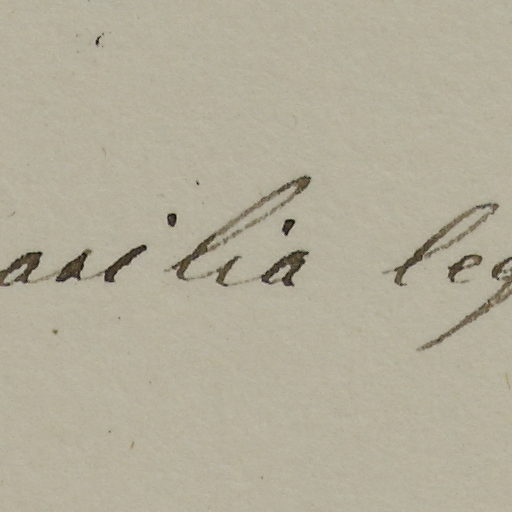 asilia leg